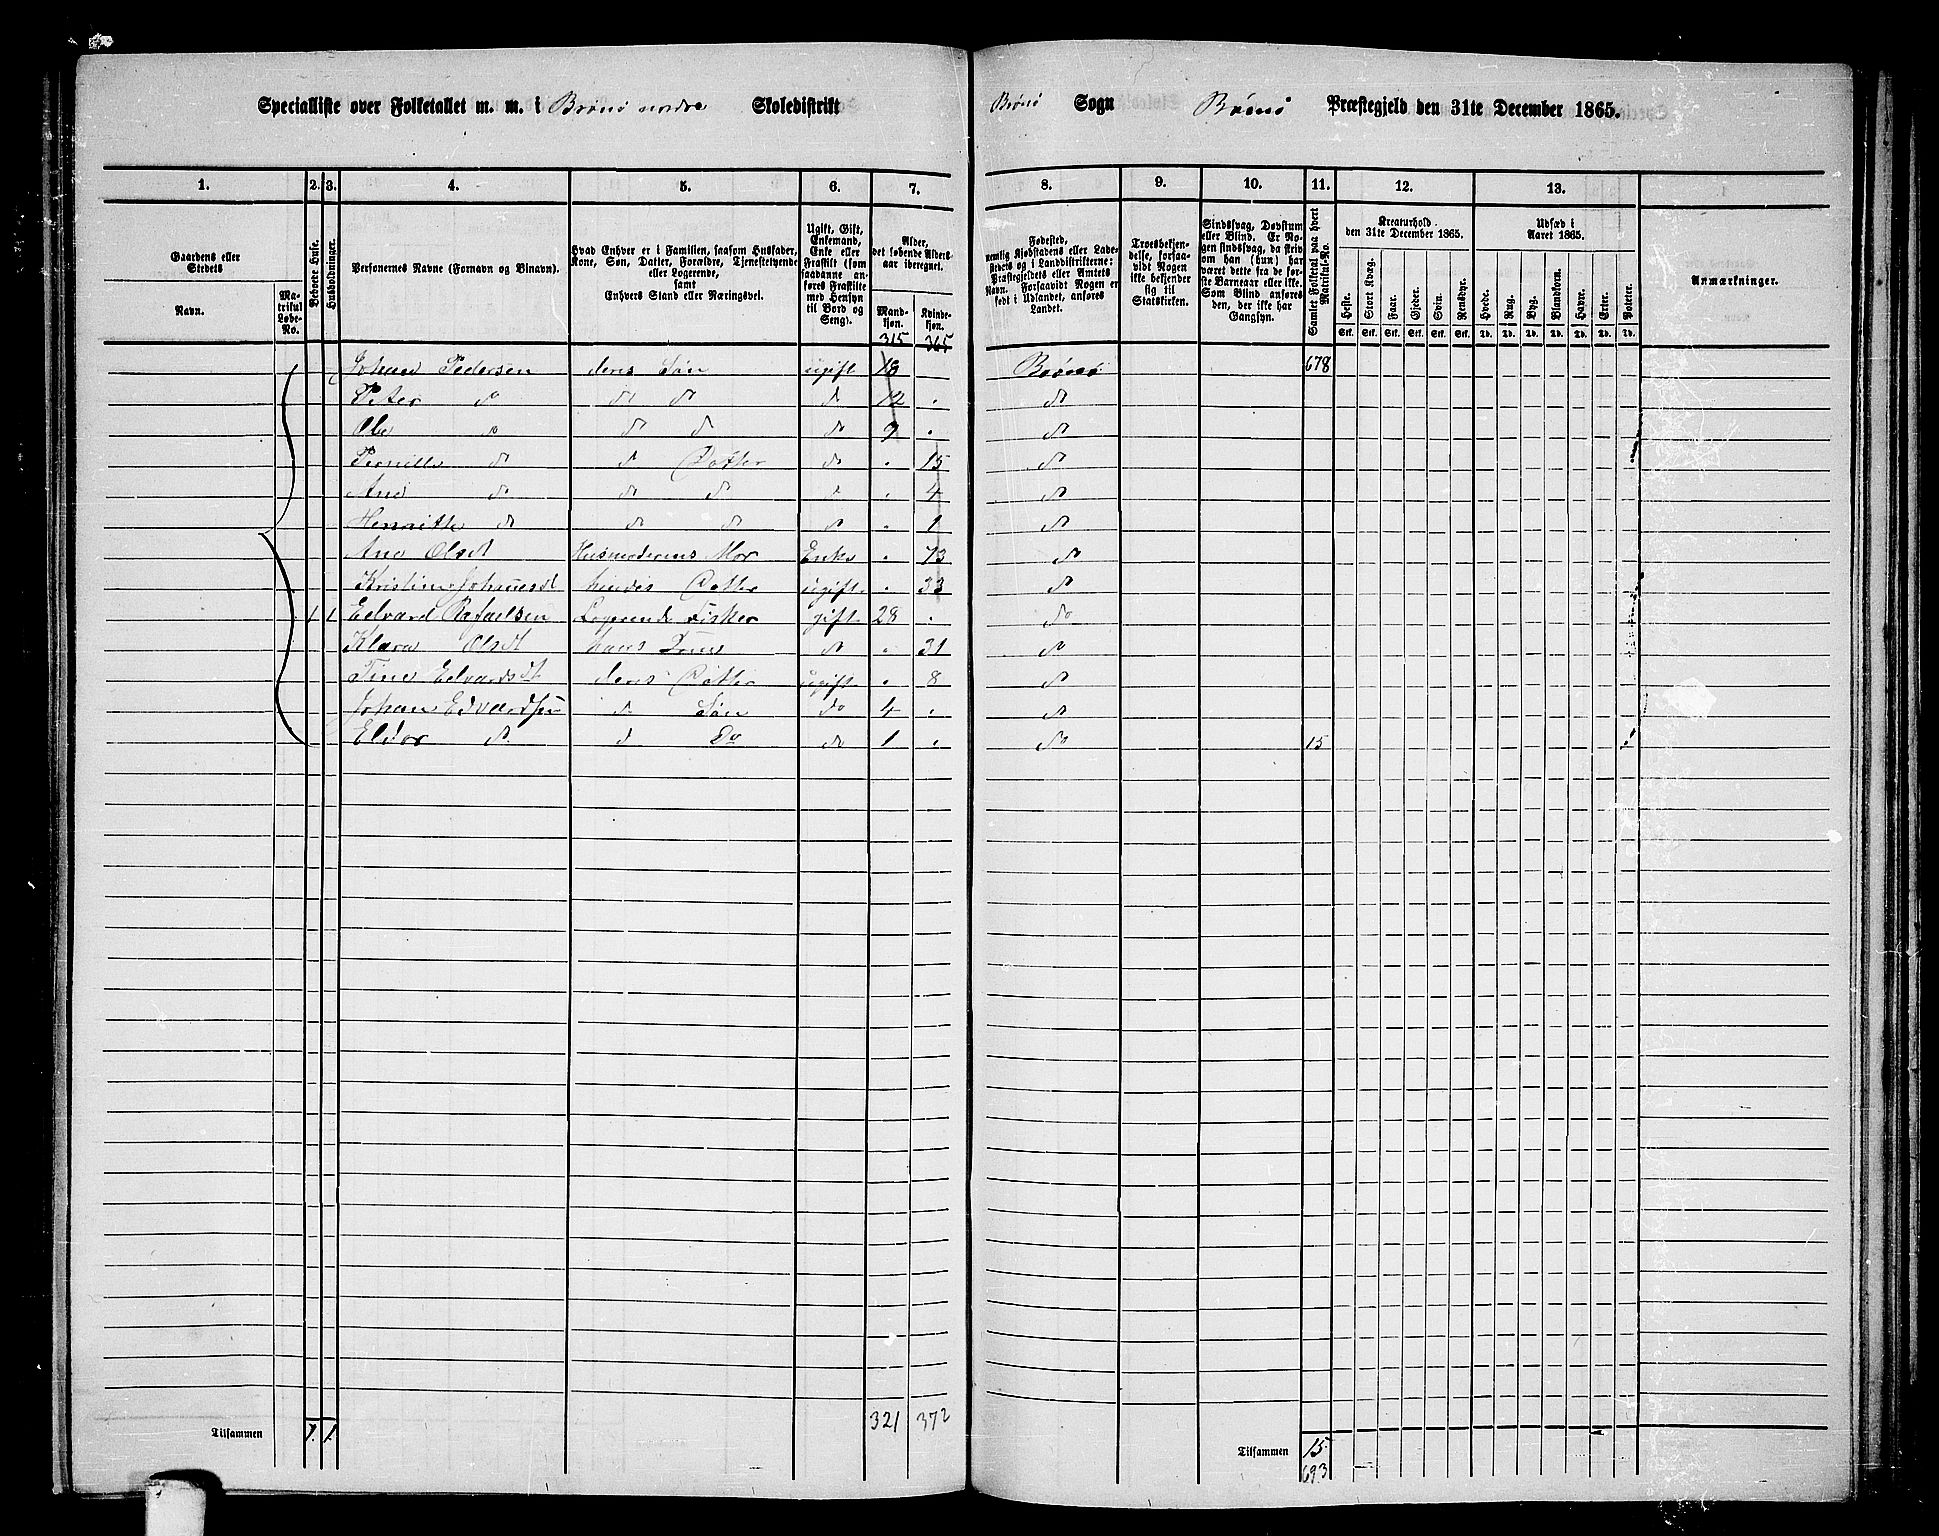 Specialliste over Folketallet m. m. i Brönö nordre Skoledistrikt Brönö Sogn Brönö Præstegjeld den 31te December 1865.
1. 2. 3. 4. 5. 6. 7. 8. 9. 10. 11. 12. 13.
Gaardens eller Stedets
Navn.
Matrikul Løbe-No.
Beboede Huse.
Husholdninger.
Personernes Navne (Fornavn og Binavn).
Hvad Enhver er i Familien, saasom Husfader, Kone, Søn, Datter, Forældre, Tjenestetyende eller Logerende, samt Enhvers Stand eller Næringsvei.
Ugift, Gift, Enkemand, Enke eller Fraskilt (som saadanne anføres Fraskilte med Hensyn til Bord og Seng).
Alder, det løbende Alders-aar iberegnet.
Mand-kjøn.
Kvinde-kjøn.
Fødested, nemlig Kjøbstadens eller Ladestedets og i Landdistrikterne: Præstegjeldets eller Amtets Navn. Forsaavidt Nogen er født i Udlandet, anføres Landet.
Troesbekjendelse, forsaavidt Nogen ikke bekjender sig til Statskirken.
Sindssvag, Døvstum eller Blind. Er Nogen sindssvag, da skriv om han (hun) har været dette fra de første Barneaar eller ikke. Som Blind anføres den, der ikke har Gangsyn.
Samlet Folketal paa hvert Matrikul-No.
Kreaturhold den 31te December 1865.
Heste. Stort Kvæg. Faar. Gjeder. Svin. Rensdyr.
Stk. Stk. Stk. Stk. Stk. Stk.
Udsæd i Aaret 1865.
Hvede. Rug. Byg. Blandkorn. Havre. Erter. Poteter.
Td. Td. Td. Td. Td. Td. Td.
Anmærkninger.
315 365
Johan Pedersen deres Søn ugift 18 Brönö 678
Peter do do do do 12 . do
Ole do do do do 9 . do
Pernille do do Datter do . 15 do
Ane do do do do . 4 do
Henritte do do do do . 1 do
Ane Olsdt Husmoderens Mor Enke . 73 do
Kristine Johnesdt hendes Datter ugift . 33 do
1 1 Edvard Rafaelsen Logerende Fisker gift 28 . do
Klara Olsdt hans Kone do . 31 do
Tine Edvardsdt deres Datter ugift . 8 do
Johan Edvardsen d Søn do 4 . do
Eldor do d do do 1 . do 15
Tilsammen 1. 1. 321 372 Tilsammen 15
693